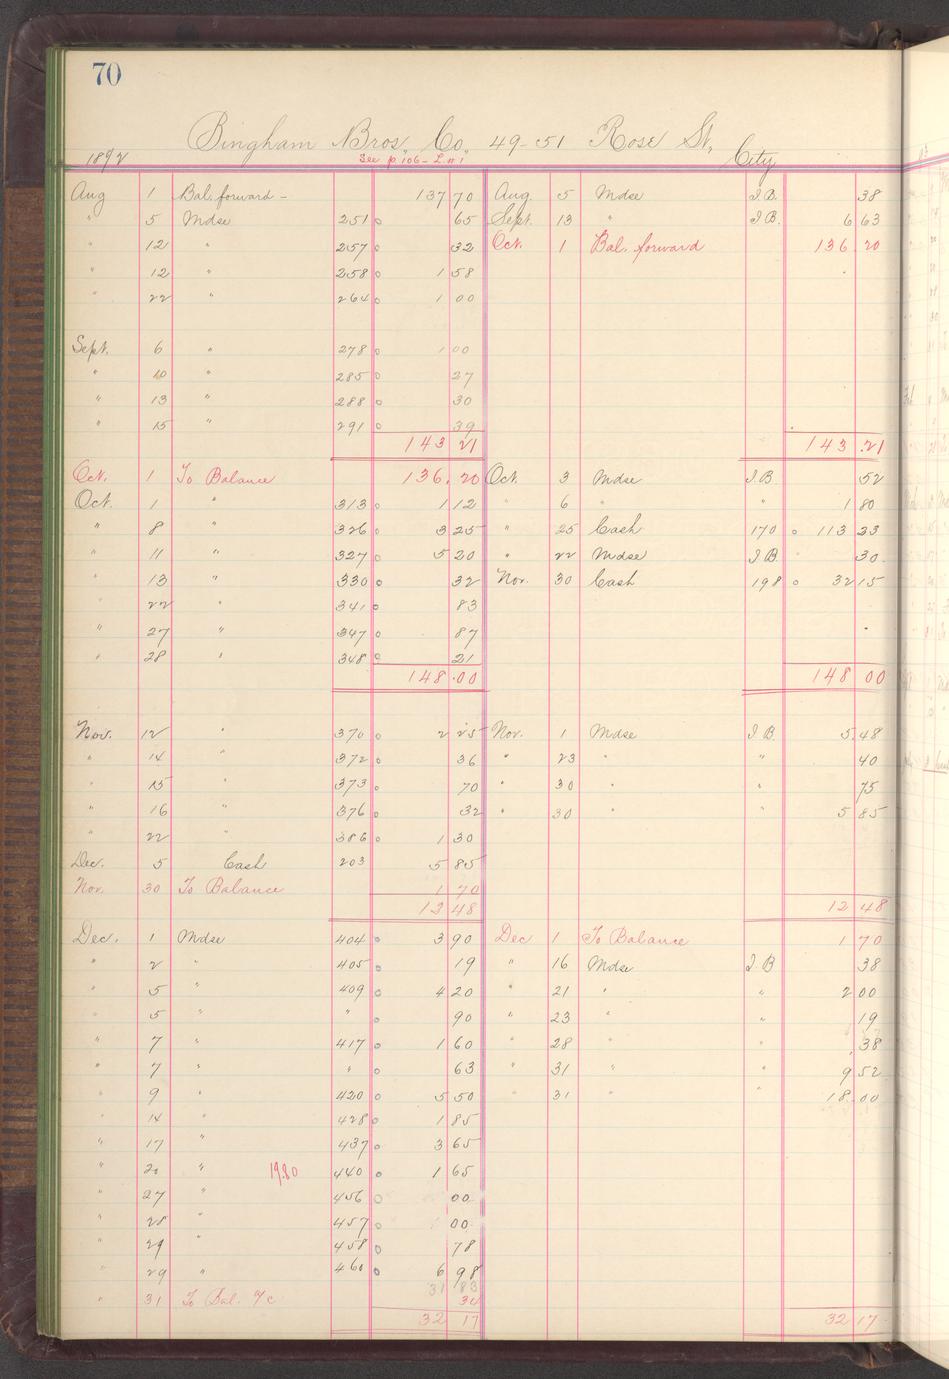 70
Bingham Bros. Co. 49-51 Rose St, City
1892
See p 106 - L # 1
Aug 1 Bal. forward - 137 70 Aug. 5 Mdse J.B. 38
" 5 Mdse 251 0 65 Sept. 13 " J.B. 6 63
" 12 " 257 0 32 Oct. 1 Bal. forward 136 20
" 12 " 258 0 1 58
" 22 " 264 0 1 00
Sept. 6 " 278 0 1 00
" 10 " 285 0 27
" 13 " 288 0 30
" 15 " 291 0 39
143 21 143 21
Oct. 1 To Balance 136. 20 Oct. 3 Mdse J.B. 52
Oct. 1 " 313 0 1 12 " 6 " " 1 80
" 8 " 326 0 3 25 " 25 Cash 170 0 113 23
" 11 " 327 0 5 20 " 22 Mdse J.B. 30
" 13 " 330 0 32 Nov. 30 Cash 198 0 32 15
" 22 " 341 0 83
" 27 " 347 0 87
" 28 " 348 0 21
148 00 148 00
Nov. 12 " 370 0 2 25 Nov. 1 Mdse J.B. 5 48
" 14 " 372 0 36 " 23 " " 40
" 15 " 373 0 70 " 30 " " 75
" 16 " 376 0 32 " 30 " " 5 85
" 22 " 386 0 1 30
Dec. 5 Cash 203 5 85
Nov. 30 To Balance 1 70
12 48 12 48
Dec. 1 Mdse 404 0 3 90 Dec 1 To Balance 1 70
" 2 " 405 0 19 " 16 Mdse J.B 38
" 5 " 409 0 4 20 " 21 " " 2 00
" 5 " " 0 90 " 23 " " 19
" 7 " 417 0 1 60 " 28 " " 38
" 7 " " 0 63 " 31 " " 9 52
" 9 " 420 0 5 50 " 31 " 18 00
" 14 " 428 0 1 85
" 17 " 437 0 3 65
" 20 " 19.80 440 0 1 65
" 27 " 456 0 00
" 28 " 457 0 00
" 29 " 458 0 78
" 29 " 460 0 6 98
31 83
" 31 To Bal. 7/c 34
32 17 32 17